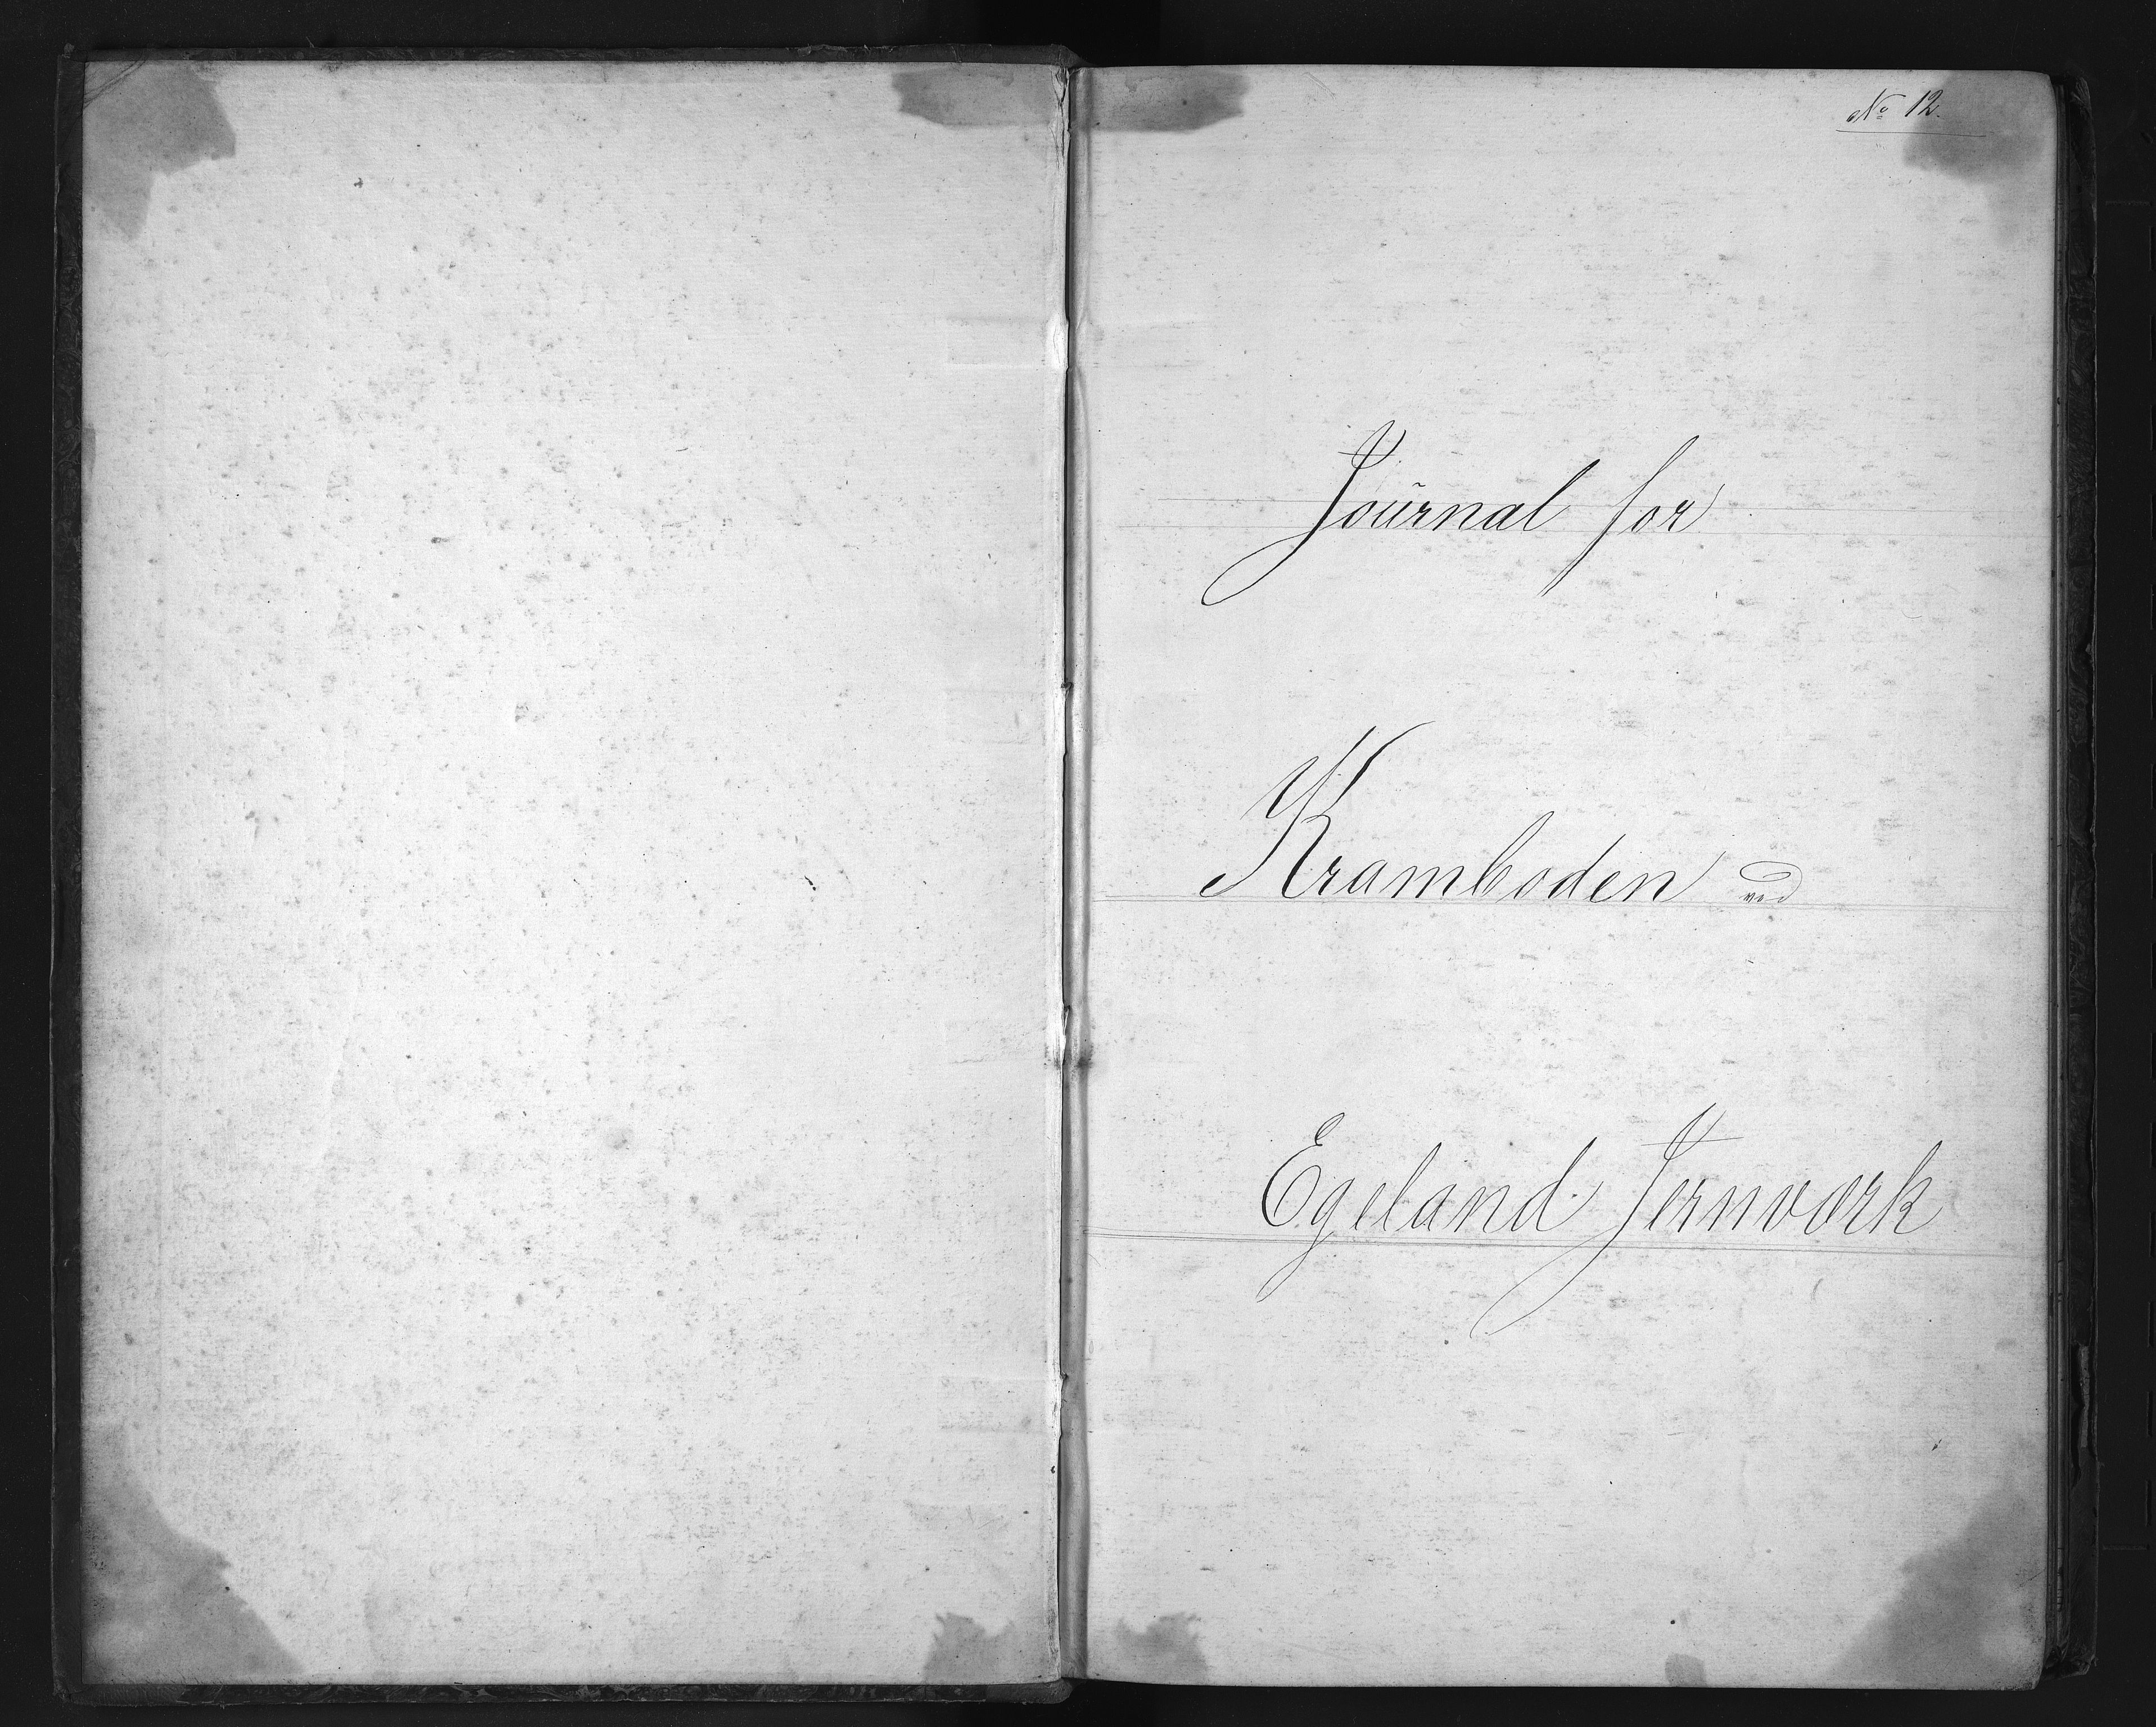 No 12.
Journal for
Kramboden ved
Egeland Jernværk